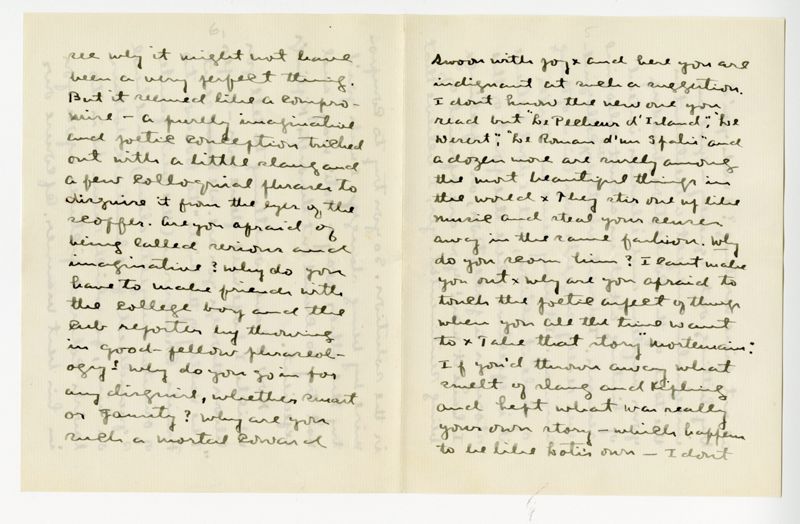 see why it might not have
been a very perfect thing.
But it seemed like a compro-
mise - a purely imaginative
and poetic conception tricked
out with a little slang and
a few colloquial phrases to
disguise it from the eyes of the
scoffer. Are you afraid of
being called serious and
imaginative? Why do you
have to make friends with
the college boy and the
cub reporter by throwing
in good-fellow phraseol-
ogy? Why do you go in for
any disguise, whether smart
or jaunty? Why are you
such a mortal coward
swoon with joy x and here you are
indignant at such a suggestion.
I dont know the new one you
read but "Le Pecheur d'Island", "Le
Desert", "Le Roman d'un Spahi" and
a dozen more are surely among
the most beautiful things in
the world x They stir one up like
music and steal your senses
away in the same fashion. Why
do you scorn him? I cant make
you out x Why are you afraid to
touch the poetic aspect of things
when you all the time want
to x Take that story "Mortemain".
If you'd thrown away what
smelt of slang and Kipling
and kept what was really
your own story - which happens
to be like Loti's own - I dont